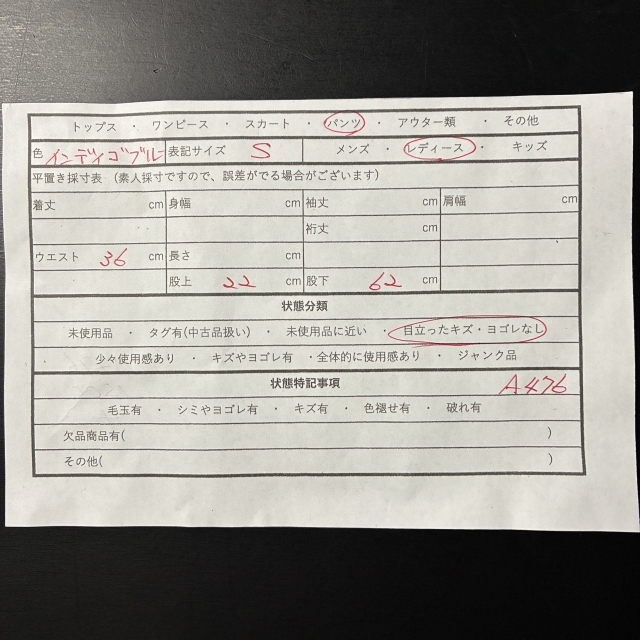 トップス ・ ワンピース ・ スカート ・ パンツ ・ アウター類 ・ その他
色 インディゴブルー 表記サイズ S メンズ ・ レディース ・ キッズ
平置き採寸表 (素人採寸ですので、誤差がでる場合がございます)
着丈 cm 身幅 cm 袖丈 cm 肩幅 cm
裄丈 cm
ウエスト 36 cm 長さ cm
股上 22 cm 股下 62 cm
状態分類
未使用品 ・ タグ有(中古品扱い) ・ 未使用品に近い ・ 目立ったキズ・ヨゴレなし
少々使用感あり ・ キズやヨゴレ有 ・全体的に使用感あり ・ ジャンク品
状態特記事項 A476
毛玉有 ・ シミやヨゴレ有 ・ キズ有 ・ 色褪せ有 ・ 破れ有
欠品商品有( )
その他( )